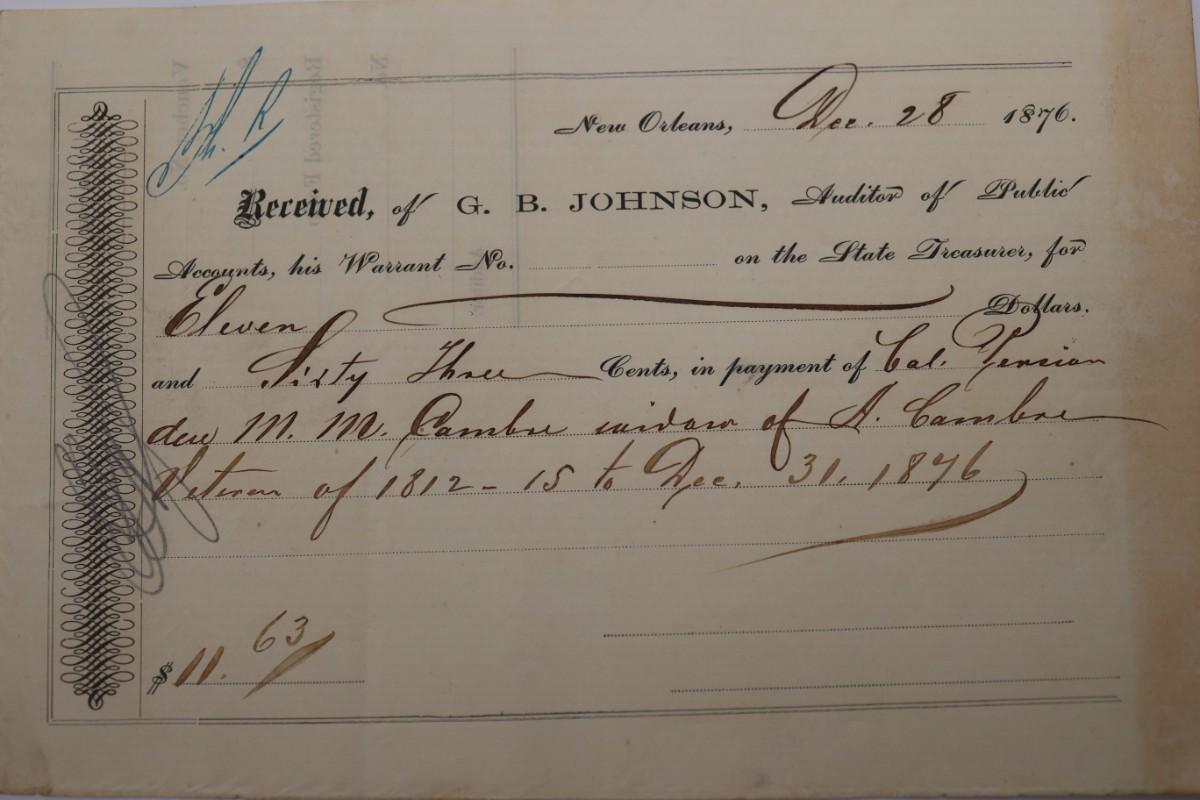 New Orleans, Dec. 28 1876.
Received, of G. B. JOHNSON, Auditor of Public
Accounts, his Warrant No. on the State Treasurer, for
Eleven Dollars.
and Sixty Three Cents, in payment of Bal. Pension
due M. M. Cambre widow of A. Cambre
Veteran of 1812-15 to Dec. 31, 1876
$11.63